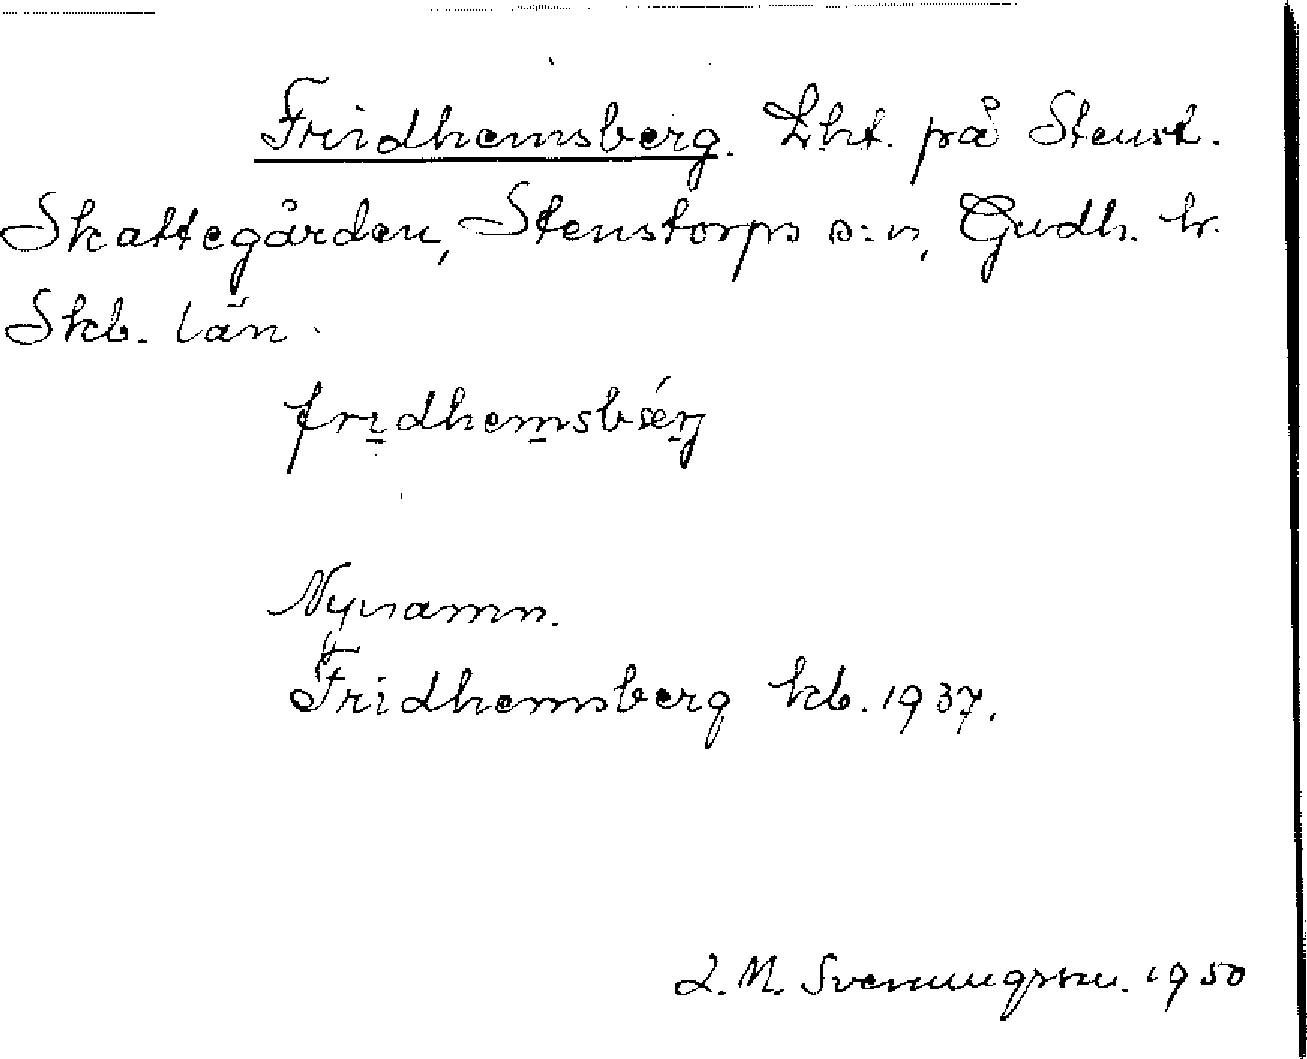 Fridhemsberg. Lht. på Stenst.
Skattegården, Stenstorps s:n, Gudh. hr.
Skb. län.
fri̱dhem̱sbérj
Nynamn.
Fridhemsberg kb. 1937.
L. M. Svenungsson. 1950